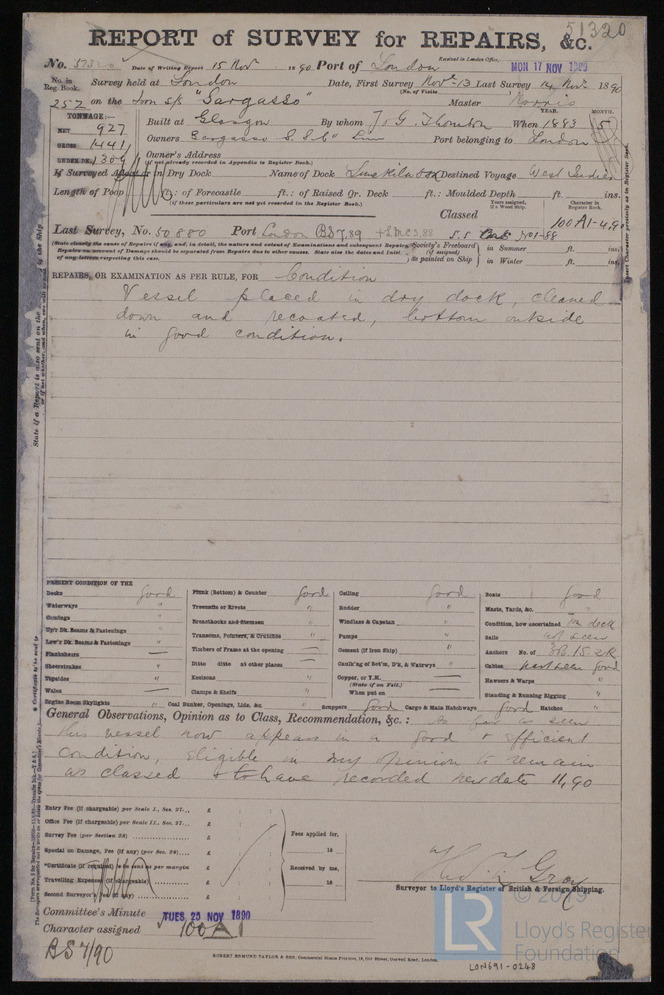 51320
REPORT of SURVEY for REPAIRS, &c.
No. Date of Writing Report 15 Nov 1890 Port of London Received in London Office, MON 17 NOV 1890
No. in Reg. Book. Survey held at London Date, First Survey Nov. 13 Last Survey 14 Nov. 1890
(No. of Visits)
252 on the Iron s/s "Sargasso" Master
TONNAGE:— YEAR. MONTH.
NET 927 Built at Glasgow By whom When 1883 5
GROSS 1441 Owners Sargasso S.S. Co Lim Port belonging to London
UNDER DK. 1309 Owner's Address
(if not already recorded in Appendix to Register Book.)
If Surveyed Afloat or in Dry Dock Name of Dock Destined Voyage West Indies
Length of Poop ft.: of Forecastle ft.: of Raised Qr. Deck ft.: Moulded Depth ft. ins.
(if these particulars are not yet recorded in the Register Book.)
Years assigned, if a Wood Ship. Character in Register Book.
Classed 100A1-4,90
Last Survey, No. 50880 Port London BS 7,89 +LMC 3,88 S.S. No1-88
Society's Freeboard (if assigned) as painted on Ship in Summer ft. ins.
in Winter ft. ins.
REPAIRS, OR EXAMINATION AS PER RULE, FOR Condition
Vessel placed in dry dock, cleaned
down and recoated, bottom outside
in good condition.
PRESENT CONDITION OF THE
Decks good Plank (Bottom) & Counter good Ceiling good Boats good
Waterways " Treenails or Rivets " Rudder " Masts, Yards, &c. "
Comings " Breasthooks and Stemson " Windlass & Capstan " Condition, how ascertained In dock
Up'r Dk. Beams & Fastenings " Transoms, Pointers, & Crutches " Pumps " Sails not seen
Low'r Dk. Beams & Fastenings " Timbers of Frame at the opening — Cement (if Iron Ship) " Anchors No. of 3B 1S 2K
Planksheers — Ditto ditto at other places — Caulk'ng of Bot'm, D'k, & Waterwys " Cables part seen good
Sheerstrakes " Keelsons " Copper, or Y.M. — Hawsers & Warps "
Topsides " Clamps & Shelfs — (State if on Felt.) Standing & Running Rigging "
Wales — When put on —
Engine Room Skylights " Coal Bunker, Openings, Lids, &c. " Scuppers good Cargo & Main Hatchways good Hatches "
General Observations, Opinion as to Class, Recommendation, &c.: As far as seen
this vessel now appears in a good & efficient
condition, eligible in my opinion to remain
as classed & to have recorded new date 11,90
Entry Fee (if chargeable) per Scale I., Sec. 27... £
Office Fee (if chargeable) per Scale II., Sec. 27... £
Survey Fee (per Section 28) £ Fees applied for,
Special on Damage, Fee (if any) (per Sec. 28) £ 18
*Certificate (if required) to be sent as per margin £ Received by me,
Travelling Expenses (if chargeable) £ 18
Second Surveyor's Fee (if any) £
Gray
Surveyor to Lloyd's Register of British & Foreign Shipping.
Committee's Minute TUES 25 NOV 1890
Character assigned 100A1
BS 7/90
ROBERT EDMUND TAYLOR & SON, Commercial Steam Printers, 19, Old Street, Goswell Road, London.
LON691-0248
© 2019
LR
Lloyd's Register
Foundation